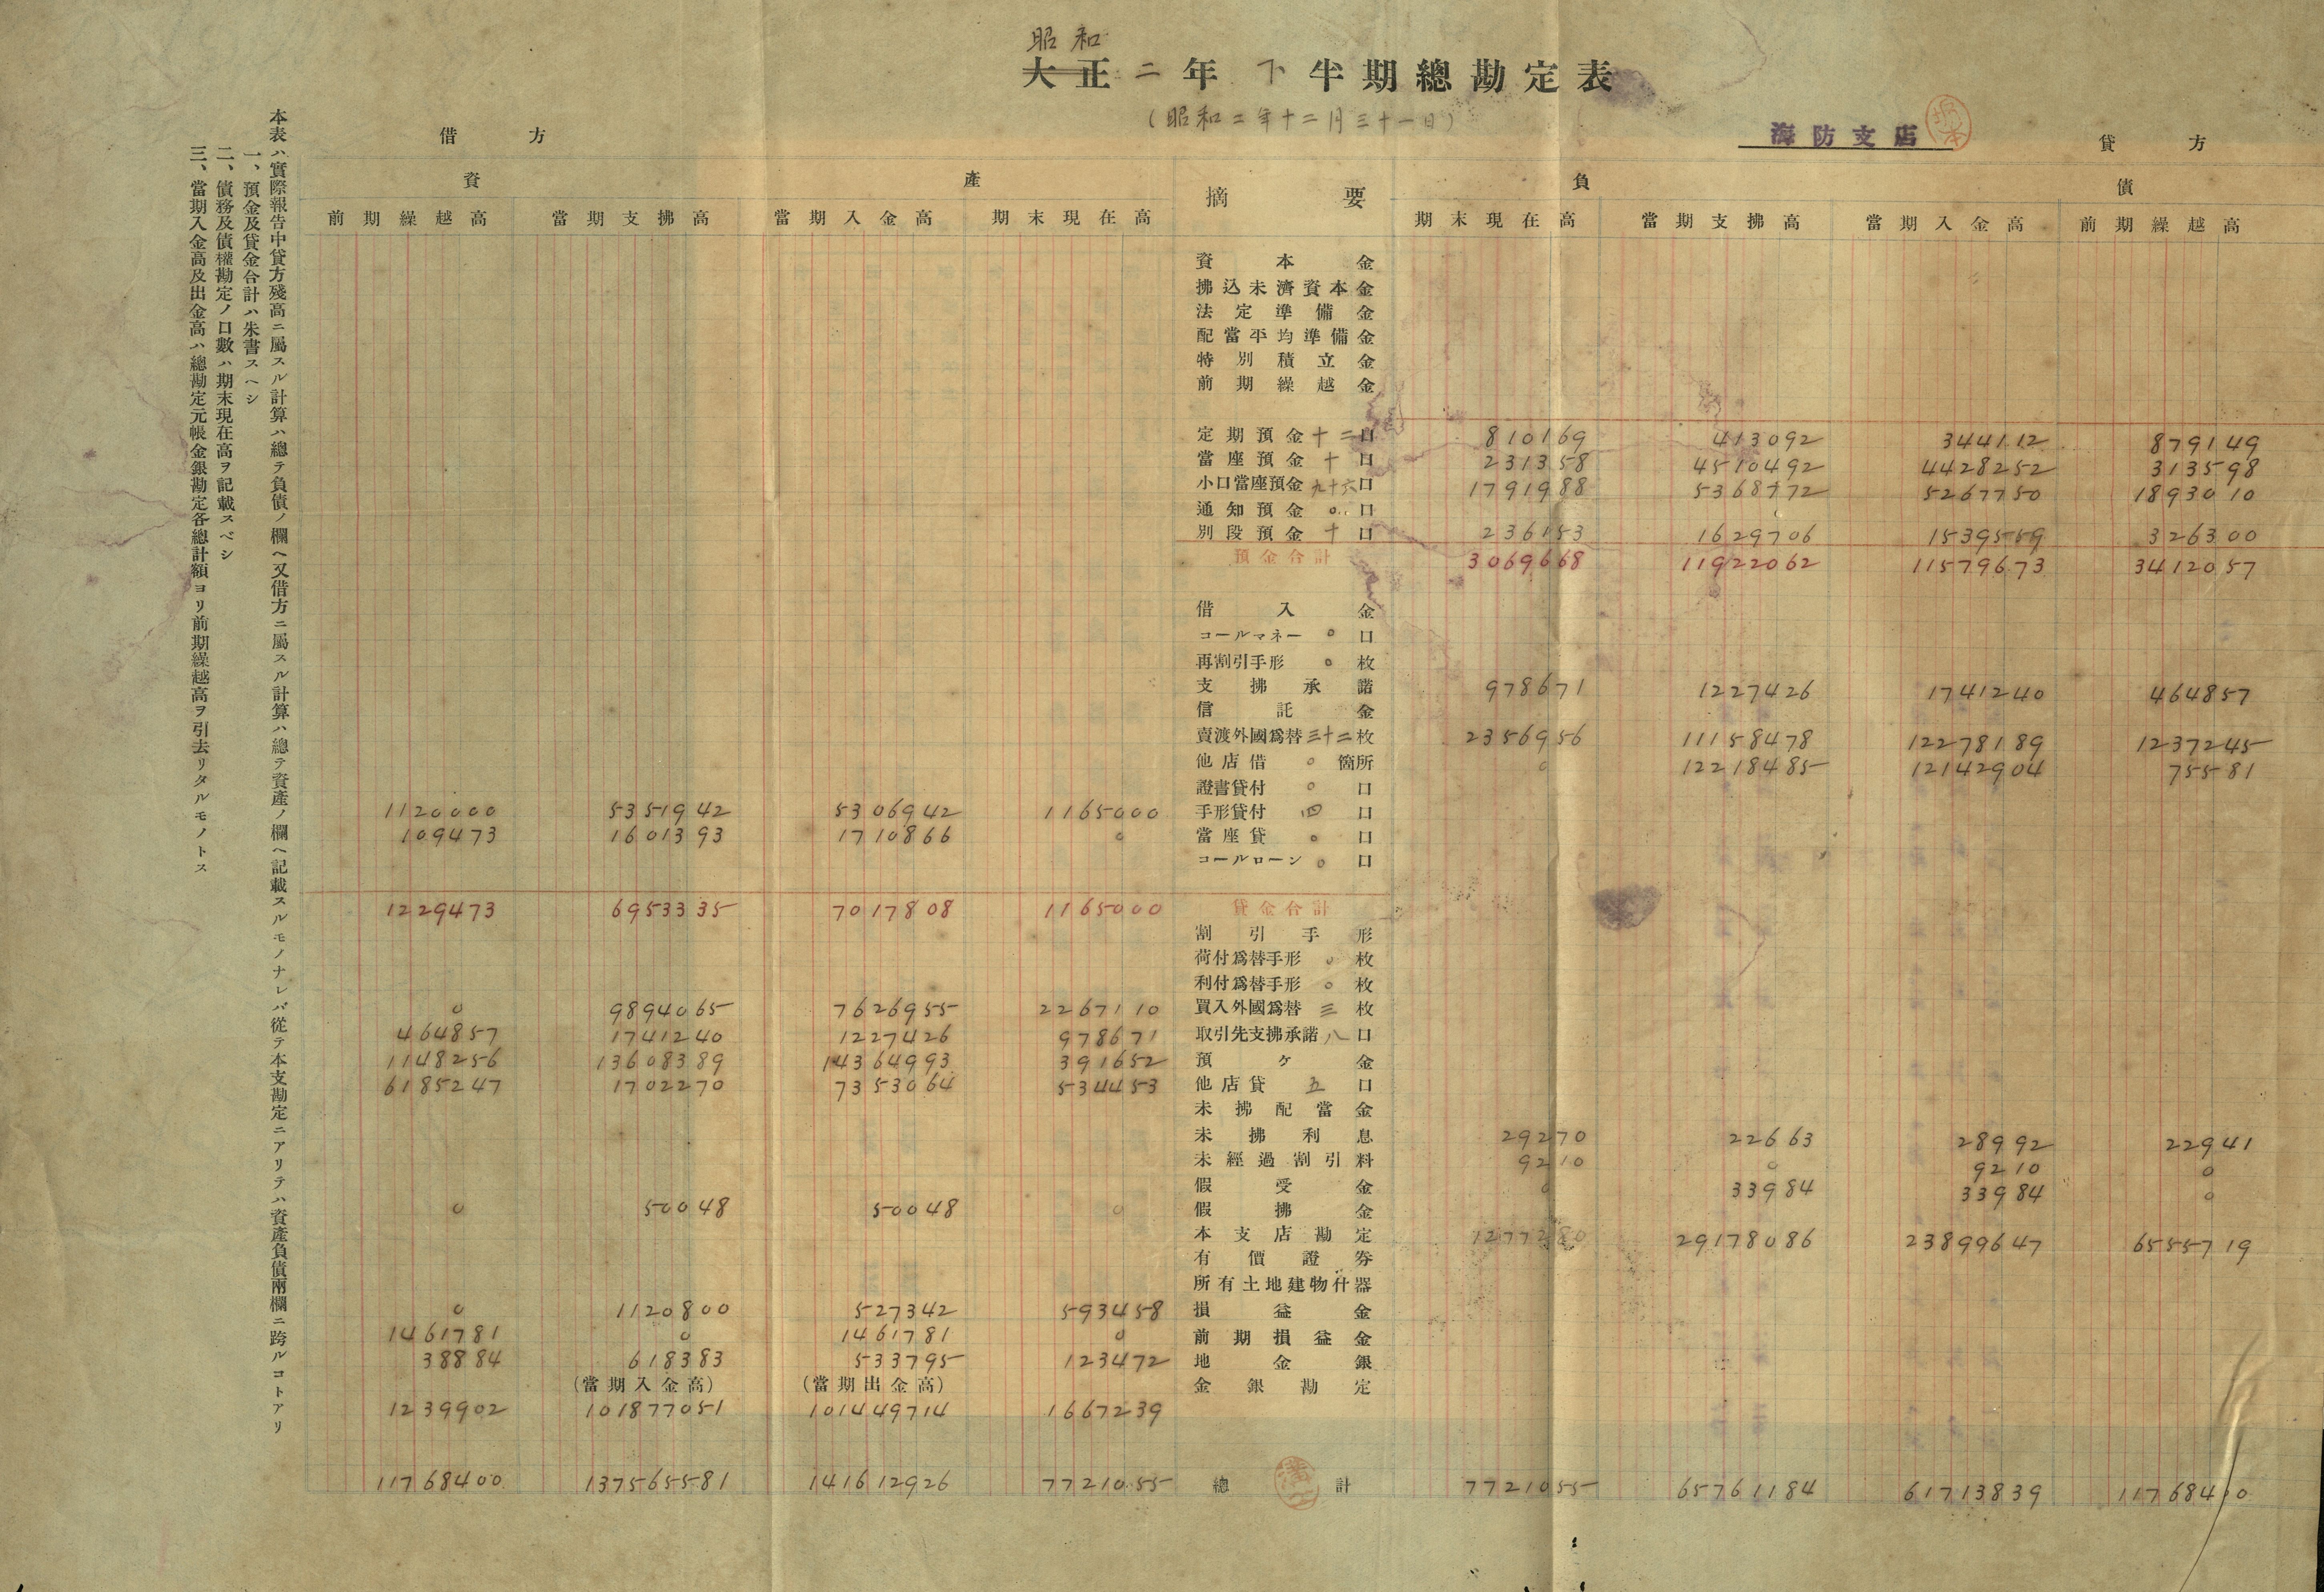 昭和
大正二年下半期總勘定表
(昭和二年十二月三十一日)
海防支店
坂本
借方
貸方
資產
摘要
負債
前期繰越高 當期支拂高 當期入金高 期末現在高 期末現在高 當期支拂高 當期入金高 前期繰越高
資本金
拂込未濟資本金
法定準備金
配當平均準備金
特別積立金
前期繰越金
定期預金十二口 810169 413092 344112 879149
當座預金十口 231358 4510492 4428252 313598
小口當座預金九十六口 1791988 5368772 5267750 1893010
通知預金0口
別段預金十口 236153 1629706 1539559 326300
預金合計 3069668 11922062 11579673 3412057
借入金
コールマネー0口
再割引手形0枚
支拂承諾 978671 1227426 1741240 464857
信託金
賣渡外國爲替三十二枚 2356956 11158478 12278189 1237245
他店借0箇所 0 12218485 12142904 75581
證書貸付0口
1120000 5351942 5306942 1165000 手形貸付四口
109473 1601393 1710866 0 當座貸0口
コールローン0口
1229473 6953335 7017808 1165000 貸金合計
割引手形
荷付爲替手形0枚
利付爲替手形0枚
0 9894065 7626955 2267110 買入外國爲替三枚
464857 1741240 1227426 978671 取引先支拂承諾八口
1148256 13608389 14364993 391652 預ケ金
6185247 1702270 7353064 534453 他店貸五口
未拂配當金
未拂利息 29270 22663 28992 22941
未經過割引料 9210 0 9210 0
假受金 0 33984 33984 0
0 50048 50048 0 假拂金
本支店勘定 1277280 29178086 23899647 6555719
有價證券
所有土地建物什器
0 1120800 527342 593458 損益金
1461781 0 1461781 0 前期損益金
38884 618383 533795 123472 地金銀
(當期入金高) (當期出金高) 金銀勘定
1239902 101877051 101449714 1667239
11768400 137565581 141612926 7721055 總計 7721055 65761184 61713839 11768400
本表ハ實際報告中貸方殘高ニ屬スル計算ハ總テ負債ノ欄ヘ又借方ニ屬スル計算ハ總テ資產ノ欄ヘ記載スルモノナレバ從テ本支勘定ニアリテハ資產負債兩欄ニ跨ルコトアリ
一、預金及貸金合計ハ朱書スヘシ
二、債務及債權勘定ノ口數ハ期末現在高ヲ記載スベシ
三、當期入金高及出金高ハ總勘定元帳金銀勘定各總計額ヨリ前期繰越高ヲ引去リタルモノトス